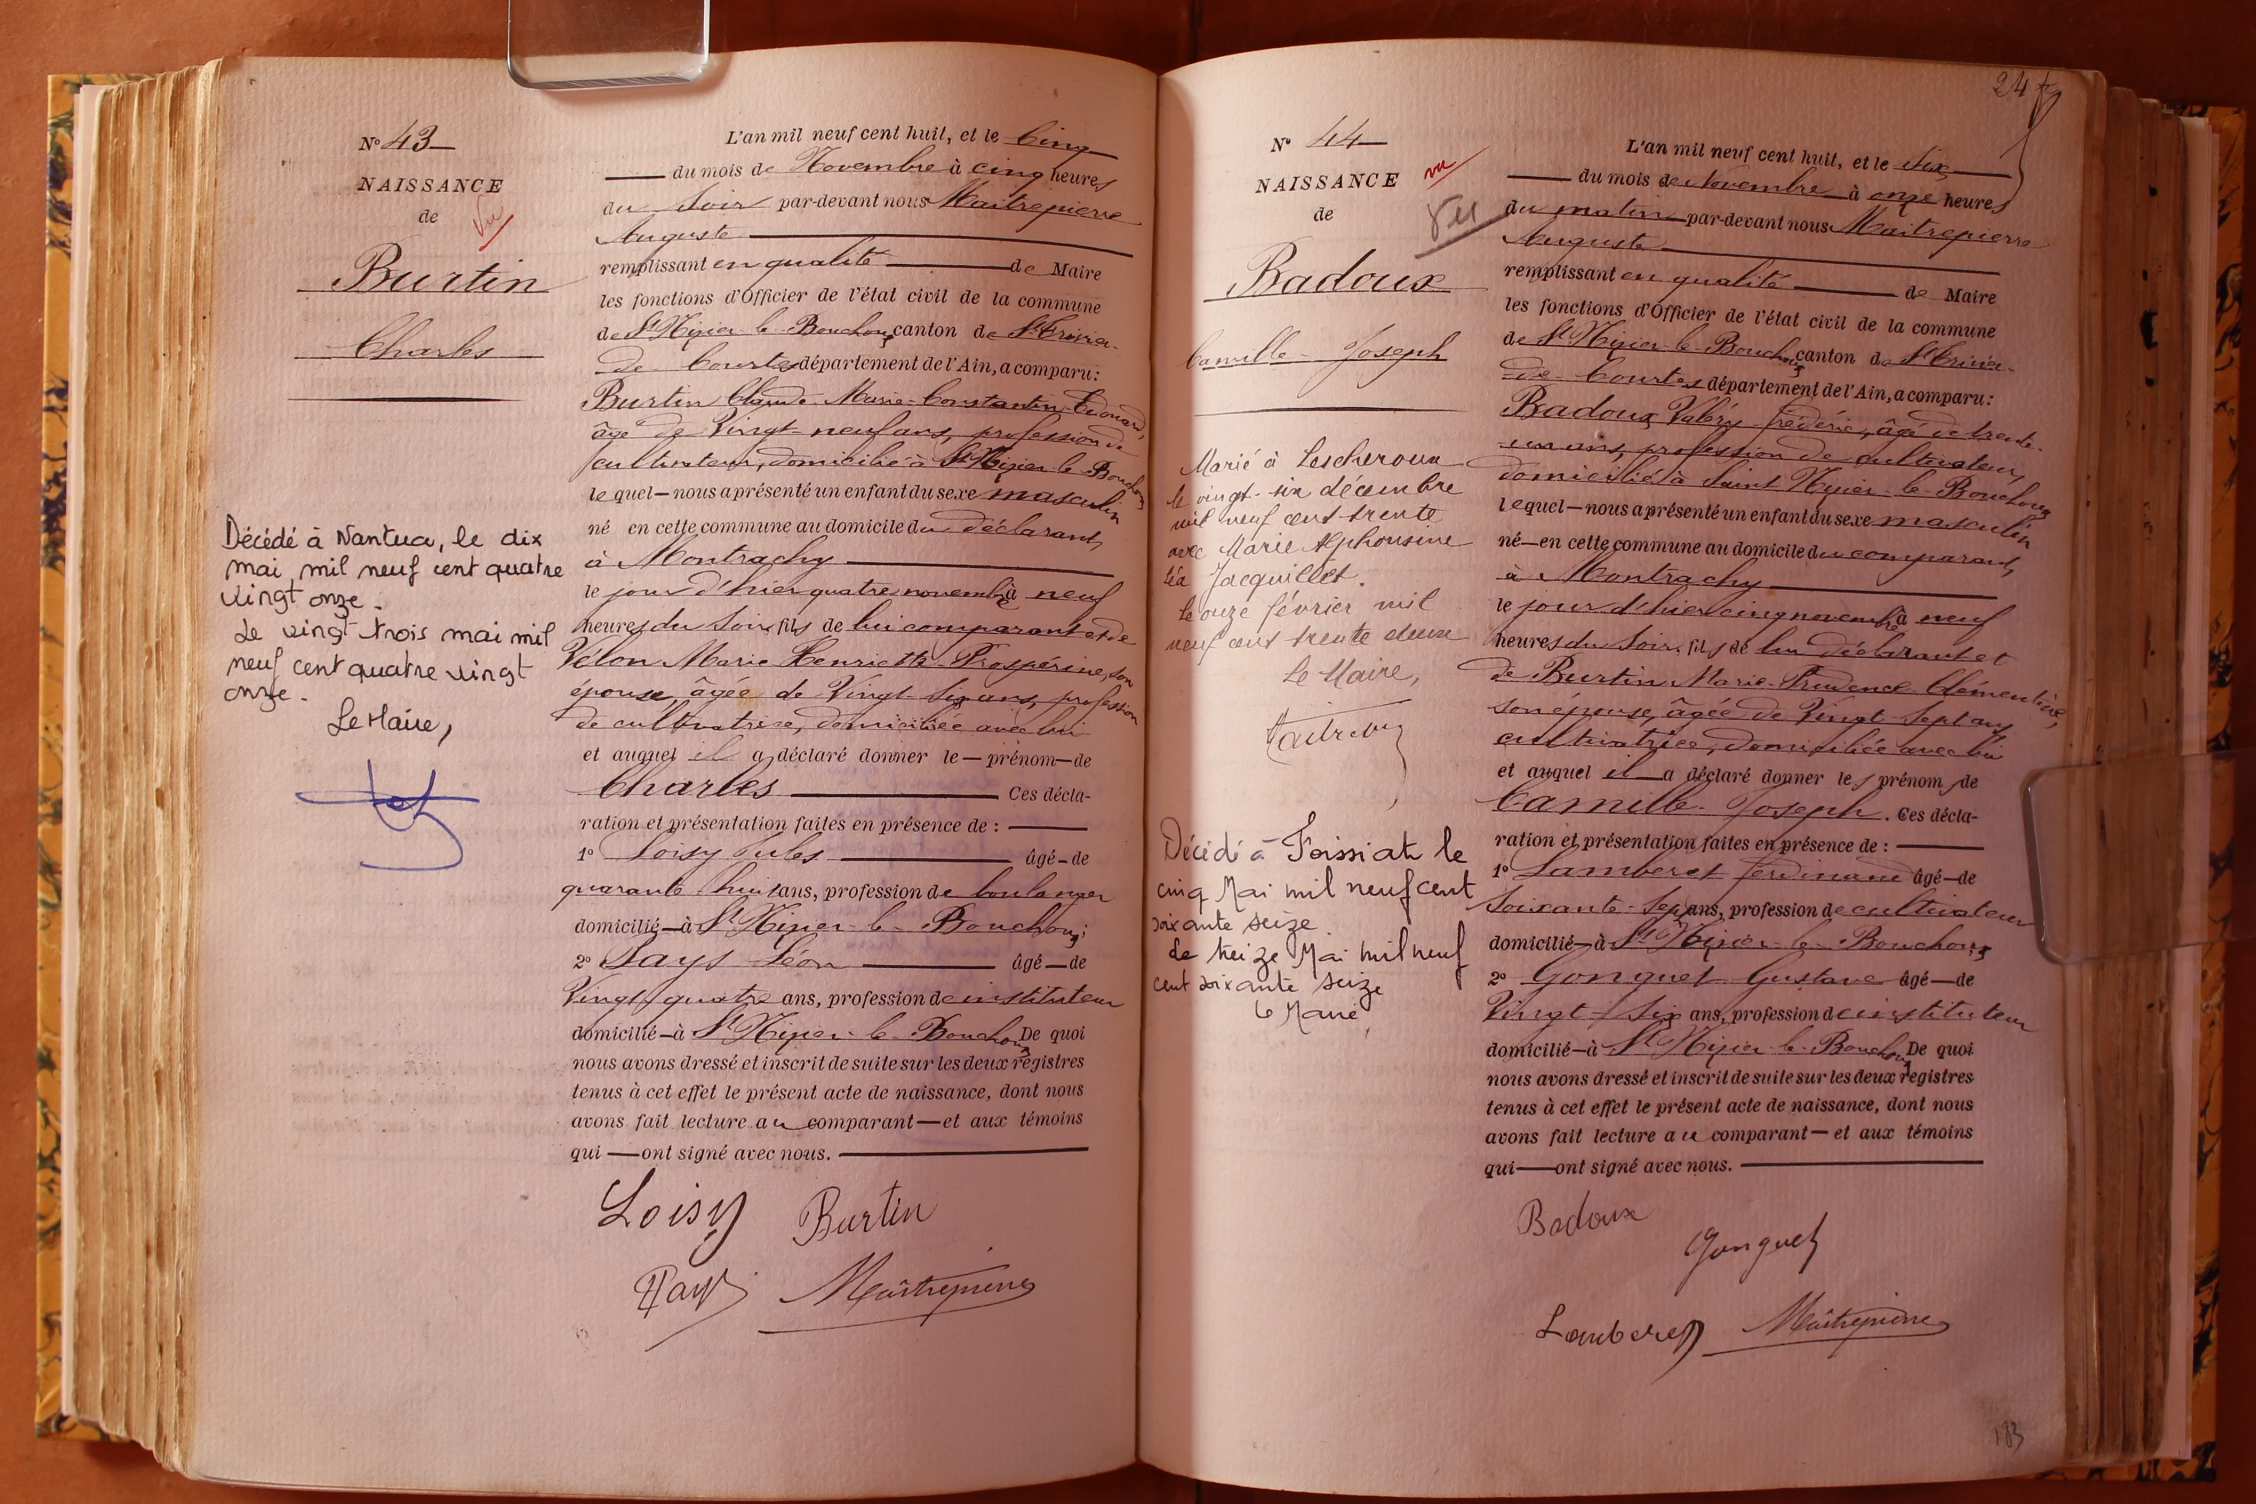 N° 43
NAISSANCE
de
Vu
Burtin
Charles
Décédé à Nantua, le dix
mai mil neuf cent quatre
vingt onze.
Le vingt trois mai mil
neuf cent quatre vingt
onze.
Le Maire,
L'an mil neuf cent huit, et le Cinq
du mois de Novembre à cinq heures
du Soir par-devant nous Maitrepierre
Auguste
remplissant en qualité de Maire
les fonctions d'Officier de l'état civil de la commune
de St Nizier-le-Bouchoux canton de St Trivier-
de Courtes département de l'Ain, a comparu:
Burtin Claude Marie-Constantin-Edouard,
âgé de Vingt-neuf ans, profession de
cultivateur, domicilié à St Nizier-le-Bouchoux
lequel — nous a présenté un enfant du sexe masculin
né en cette commune au domicile du déclarant,
à Montrachy
le jour d'hier quatre novembre à neuf
heures du Soir, fils de lui comparant et de
Vélon Marie Henriette-Prospérine, son
épouse, âgée de Vingt-six ans, profession
de cultivatrice, domiciliée avec lui
et auquel il a déclaré donner le — prénom — de
Charles Ces décla-
ration et présentation faites en présence de :
1° Loisy Jules âgé - de
quarante-huit ans, profession de boulanger
domicilié - à St Nizier-le-Bouchoux;
2° Pays Léon âgé — de
Vingt-quatre ans, profession de instituteur
domicilié - à St Nizier-le-Bouchoux De quoi
nous avons dressé et inscrit de suite sur les deux registres
tenus à cet effet le présent acte de naissance, dont nous
avons fait lecture au comparant — et aux témoins
qui — ont signé avec nous.
Loisy Burtin
Pays Maîtrepierre
24
N° 44
NAISSANCE
vu
de
Vu
Badoux
Camille-Joseph
Marié à Lescheroux
le vingt-six décembre
mil neuf cent trente
avec Marie Alphonsine
Léa Jacquillet.
Le onze février mil
neuf cent trente deux
Le Maire,
Décédé à Foissiat le
cinq Mai mil neuf cent
soixante seize
Le treize Mai mil neuf
cent soixante seize
Le Maire,
L'an mil neuf cent huit, et le Six
du mois de Novembre à onze heures
du matin par-devant nous Maitrepierre
Auguste
remplissant en qualité de Maire
les fonctions d'Officier de l'état civil de la commune
de St Nizier-le-Bouchoux canton de St Trivier-
de-Courtes département de l'Ain, a comparu:
Badoux Valéry frédéric, âgé de trente-
un ans, profession de cultivateur,
domicilié à Saint Nizier-le-Bouchoux
lequel — nous a présenté un enfant du sexe masculin
né — en cette commune au domicile du comparant,
à Montrachy
le jour d'hier cinq novembre à neuf
heures du Soir, fils de lui déclarant et
de Burtin Marie-Prudence-Clémentine,
son épouse, âgée de Vingt-Sept ans
cultivatrice, domiciliée avec lui
et auquel il a déclaré donner les prénoms de
Camille-Joseph. Ces décla-
ration et présentation faites en présence de :
1° Lamberet ferdinand âgé — de
Soixante-Sept ans, profession de cultivateur
domicilié - à St Nizier-le-Bouchoux;
2° Gonguet Gustave âgé — de
Vingt-Six ans, profession de instituteur
domicilié - à St Nizier-le-Bouchoux De quoi
nous avons dressé et inscrit de suite sur les deux registres
tenus à cet effet le présent acte de naissance, dont nous
avons fait lecture au comparant — et aux témoins
qui — ont signé avec nous.
Badoux
Gonguet
Lamberet Maîtrepierre
183